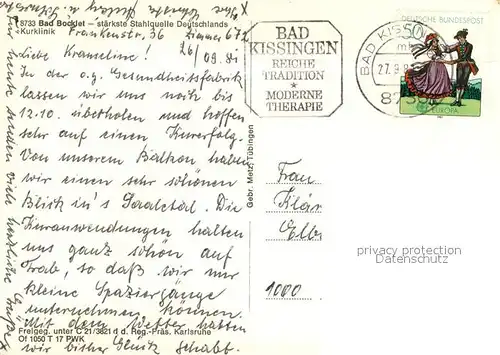 8733 Bad Bocklet – stärkste Stahlquelle Deutschlands
«Kurklinik
Frankenstr. 36 Zimmer 672
26/09.81
Liebe
In der o.g. Gesundheitsfabrik
lassen wir uns noch bis
12.10. überholen und hoffen
sehr auf einen Kurerfolg.
Von unserem Balkon haben
wir einen sehr schönen
Blick in's Saaletal. Die
Kuranwendungen halten
uns ganz schön auf
Trab, so daß wir nur
kleine Spaziergänge
unternehmen können.
Mit dem Wetter hatten
wir bisher Glück gehabt.
Freigeg. unter C 21/3821 d. d. Reg.-Präs. Karlsruhe
Of 1050 T 17 PWK
Für heute senden viele herzliche Grüße
Gebr. Metz, Tübingen
BAD
KISSINGEN
REICHE
TRADITION
*
MODERNE
THERAPIE
BAD KIS
27.9.8
DEUTSCHE BUNDESPOST
50
EUROPA
Frau
Klär
Elbe
1000
privacy protection
watermark